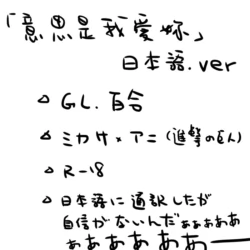 「意思是我愛妳」
日本語.ver
△ GL.百合
△ ミカサ×アニ(進撃の巨人)
△ R-18
△ 日本語に通訳したが
自信がないんだぁぁぁぁぁ
ぁあああああああー